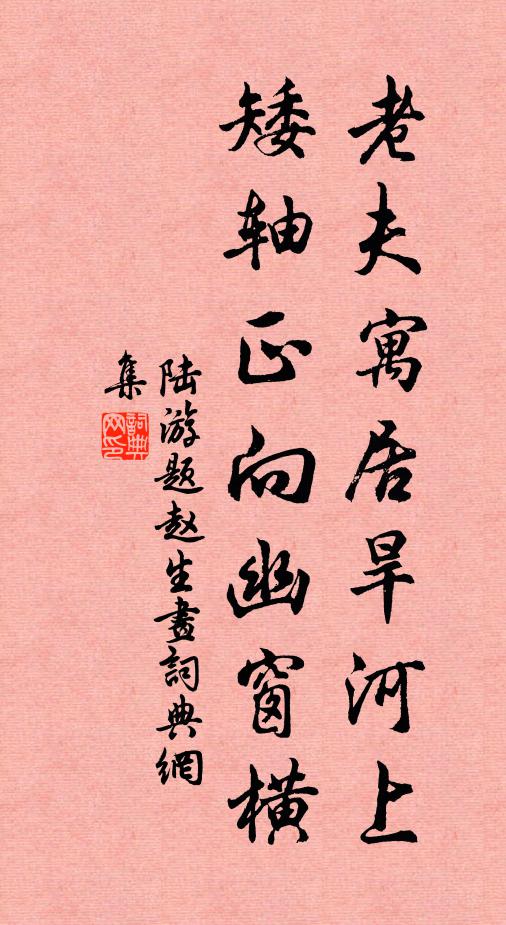 老夫寓居旱河上
矮轴正向幽窗横
陆游题赵生画詞典網
集
詞典网印